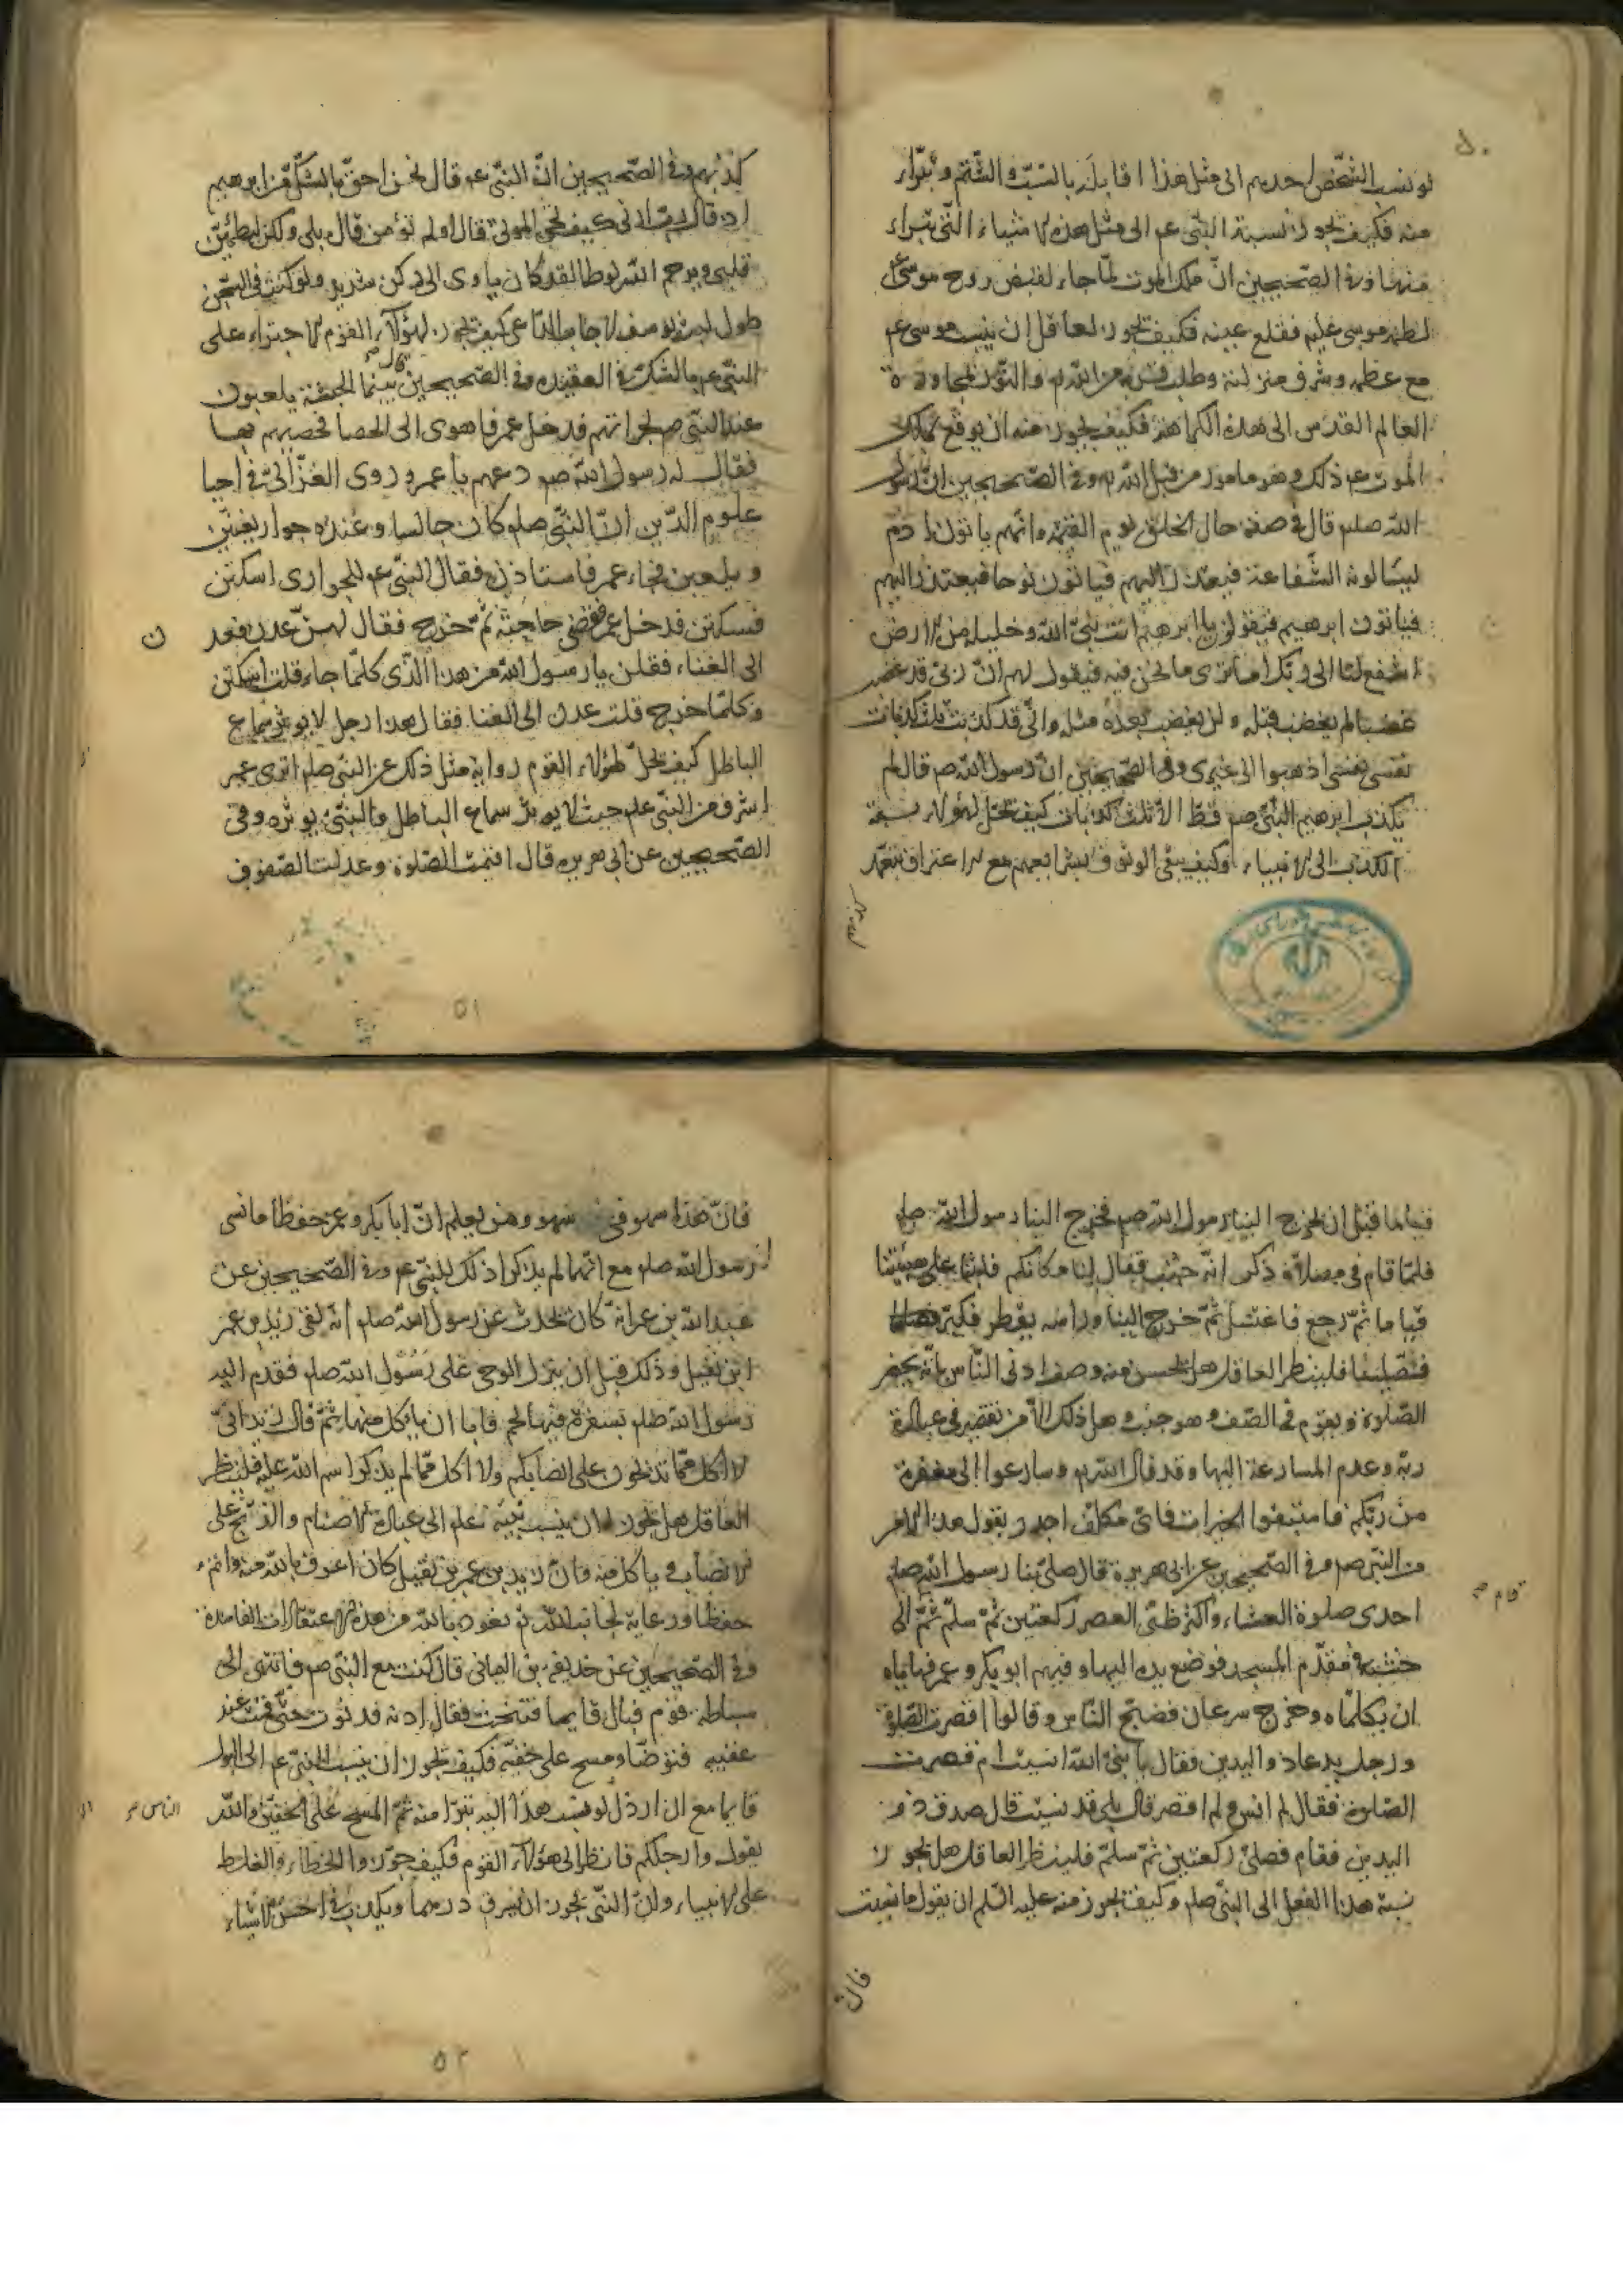 لو نسب الشخص احدهم الى مثل هذا اقابله بالسب و الشتم و تبراء
منه فكيف يجوز نسبة النبى عم الى مثل هذه الاشياء التى يتبراء
منها و فى الصحيحين ان ملك الموت لما جاء لقبض روح موسى ع
لطمه موسى عليه فقلع عينه فكيف يجوز لعاقل ان ينسب موسى عم
مع عظمه و شرف منزلته و طلب قربه من الله تم و النوز بمجاورة
العالم القدس الى هذه الكراهة فكيف يجوز منه ان يوقع بملك
الموت عم ذلك و هو مامور من قبل الله تم و فى الصحيحين ان رسول
الله صلم قال فى صفة حال الخلق يوم القيمة و انهم ياتون ادم
ليسالونه الشفاعة فيعتذر اليهم فياتون نوحا فيعتذر اليهم
فياتون ابرهيم فيقولون يا ابرهيم انت نبى الله و خليله من الارض
اشفع لنا الى ربك اما ترى ما نحن فيه فيقول لهم ان ربى قد غضب
غضبا لم يغضب قبله و لن يغضب بعده مثله و انى قد كذبت ثلث كذبات
نفسى نفسى اذهبوا الى غيرى و فى الصحيحين ان رسول الله صم قال لم
يكذب ابرهيم النبى صم قط الا ثلث كذبات كيف يحل لهؤلاء نسبة
الكذب الى الانبياء و كيف يبقى الوثوق بشرايعهم مع الاعتراف بتعمد
كذبهم و فى الصحيحين ان النبى عم قال نحن احق بالشك من ابرهيم
اذ قال رب ارنى كيف تحيى الموتى قال اولم تؤمن قال بلى ولكن ليطمئن
قلبى و يرحم الله لوطا لقد كان ياوى الى ركن شديد و لو كنت فى السجن
طول لبث يوسف لاجبت الداعى كيف يجوز لهؤلاء القوم الاجتراء على
النبى عم بالشك فى العقيدة و فى الصحيحين قال بينما الحبشة يلعبون
عند النبى صم بحرابهم فدخل عمر فاهوى الى الحصا فحصبهم بها
فقال له رسول الله صم دعهم يا عمر و روى الغزالى فى احيا
علوم الدين ان النبى صلم كان جالسا و عنده جوار يغنين
و يلعبن فجاء عمر فاستاذن فقال النبى عم للجوارى اسكتن
فسكتن فدخل عمر فقضى حاجته ثم خرج فقال لهن عدن فعدن
الى الغناء فقلن يا رسول الله من هذا الذى كلما جاء قلت اسكتن
و كلما خرج قلت عدن الى الغنا فقال هذا رجل لا يوثر سماع
الباطل كيف يحل لهؤلاء القوم رواية مثل ذلك عن النبى صلم اترى عمر
اشرف من النبى عم حيث لا يوثر سماع الباطل و النبى يوثره و فى
الصحيحين عن ابى هريره قال اقيمت الصلوة و عدلت الصفوف
٥١
قياما قبل ان يخرج الينا رسول الله صم فخرج الينا رسول الله صلم
فلما قام فى مصلاه ذكر انه جنب فقال لنا مكانكم فلبثنا على هيئتنا
قياما ثم رجع فاغتسل ثم خرج الينا و راسه يقطر فكبر
فصلينا فلينظر العاقل هل يحسن منه وصف ادنى الناس بانه يحضر
الصلوة و يقوم فى الصف و هو جنب و هل ذلك الا من تقصير فى عبادة
ربه و عدم المسارعة اليها و قد قال الله تم و سارعوا الى مغفرة
من ربكم فاستبقوا الخيرات فاى مكلف اجدر بقول هذا الامر
من النبى صم و فى الصحيحين عن ابى هريرة قال صلى بنا رسول الله صلم
احدى صلوة العشاء و اكثر ظنى العصر ركعتين ثم سلم ثم قام الى
خشبة فى مقدم المسجد فوضع يده اليها و فيهم ابو بكر و عمر فهاباه
ان يكلماه و خرج سرعان فضج الناس و قالوا اقصرت الصلوة
و رجل يدعاذ و اليدين فقال يا نبى الله انسيت ام قصرت
الصلوة فقال لم انس و لم اقصر قال بلى قد نسيت قال صدق ذو
اليدين فقام فصلى ركعتين ثم سلم فلينظر العاقل هل يجوز
نسبة هذا الفعل الى النبى صلم و كيف يجوز منه عليه السلم ان يقول ما نسيت
قال
فان هذا سهو فى سهو و من يعلم ان ابا بكر و عمر حفظا ما نسى
رسول الله صلم مع انهما لم يذكرا ذلك للنبى عم و فى الصحيحين عن
عبد الله بن عمر انه كان يحدث عن رسول الله صلم انه لقى زيد بن عمر
ابن نفيل و ذلك قبل ان ينزل الوحى على رسول الله صلم فقدم اليه
رسول الله صلم بسفرة فيها لحم فابا ان ياكل منها ثم قال زيد انى
لا اكل مما تذبحون على انصابكم و لا اكل مما لم يذكر اسم الله عليه فلينظر
العاقل هل يجوز له ان ينسب نبيه عم الى عبادة الاصنام و الذبح على
الانصاب و ياكل منه و ان زيد بن عمر بن نفيل كان اعرف بالله منه و اتم
حفظا و رعاية لجانب الله تم نعوذ بالله من هذه الاعتقادات الفاسدة
و فى الصحيحين عن حذيفة بن اليمانى قال كنت مع النبى صم فانتهى الى
سباطة قوم فبال قايما فتنحيت فقال ادنه فدنوت حتى قمت عند
عقبيه فتوضا و مسح على خفيه فكيف يجوز ان ينسب النبى عم الى البول
قايما مع ان ارذل الناس لو نسب هذا اليه تبرا منه ثم المسح على الخفين و الله
يقول و ارجلكم فانظر الى هؤلاء القوم فكيف جوزوا الخطاء و الغلط
على الانبياء و ان النبى يجوز ان يسرق درهما و يكذب فى اخس الاشياء
٥٢